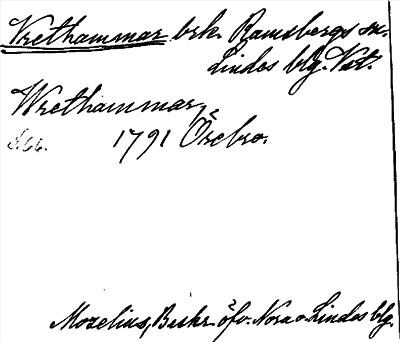 Vrethammar brk. Ramsbergs sn.
Lindes blg. Vst.
Wrethammar,
1791 Örebro.
Mozelius, Beskr. öfv. Nora o. Lindes blg.